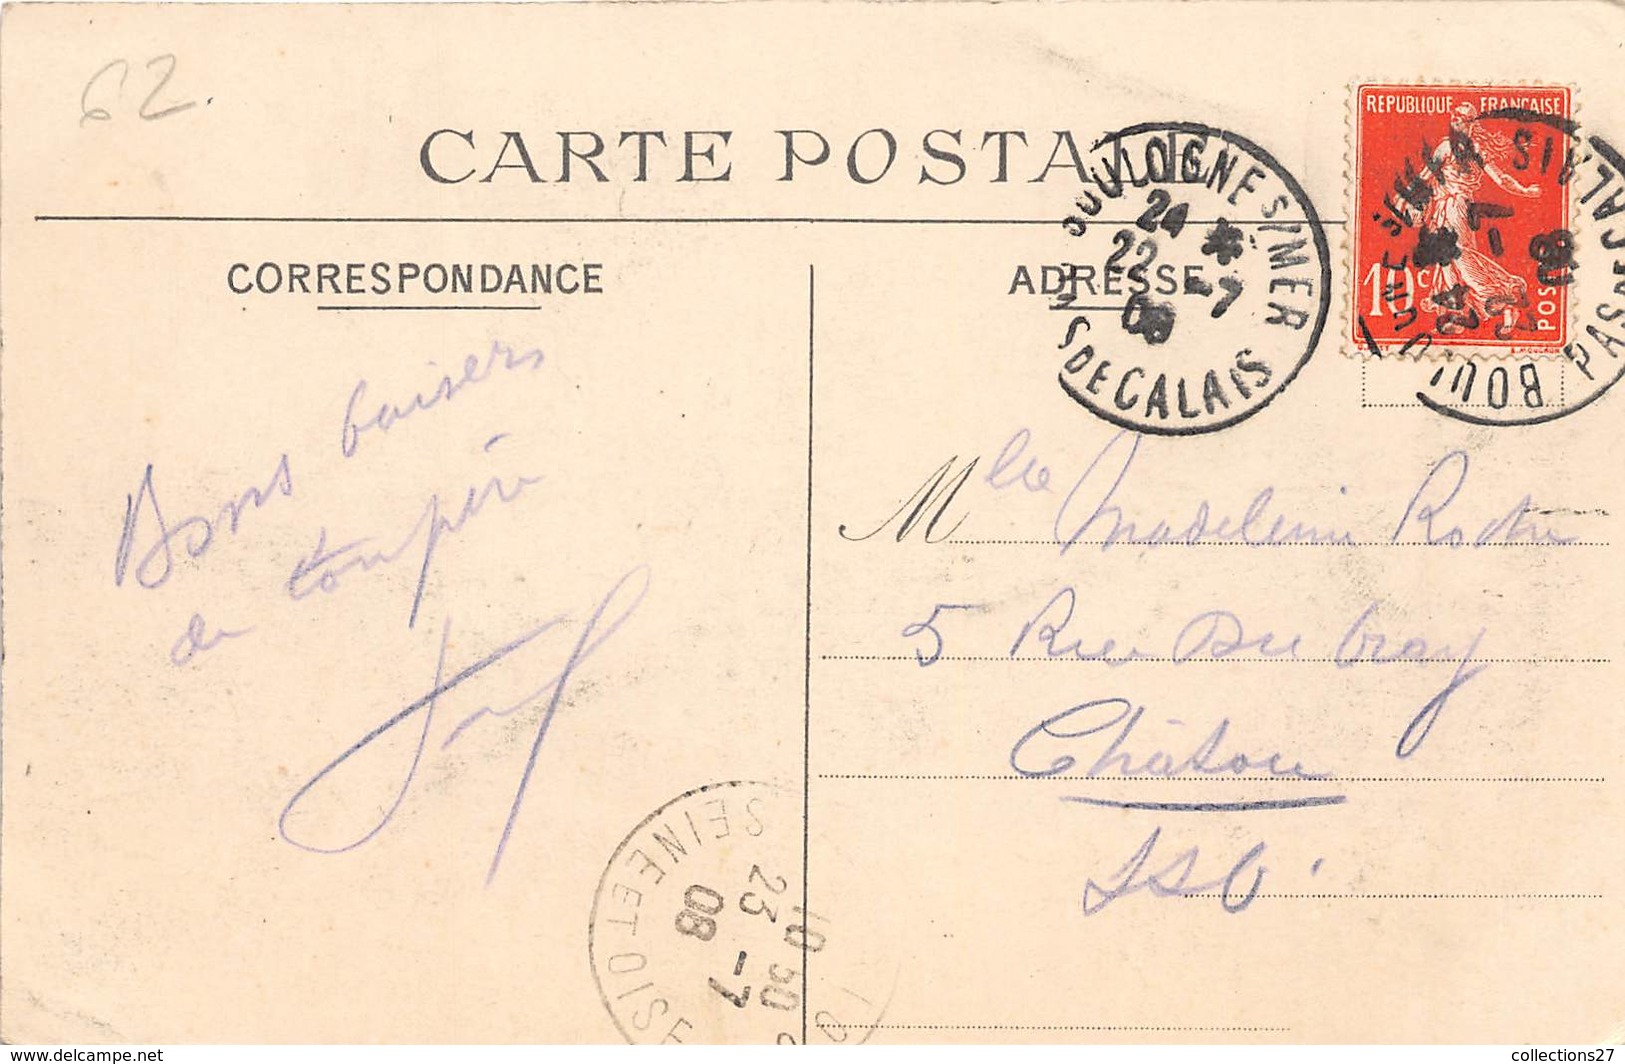 62.
CARTE POSTALE
CORRESPONDANCE
ADRESSE
REPUBLIQUE FRANÇAISE
10c
POSTES
BOULOGNE S/MER
24
22 -7
08
PAS DE CALAIS
BOULOGNE S/MER
24
22 -7
08
PAS DE CALAIS
Bons baisers
de ton père
Mlle Madeleine
5 Rue Du
Chatou
S & O.
SEINE ET OISE
10 50
23 -7
08
delcampe.net
collections27